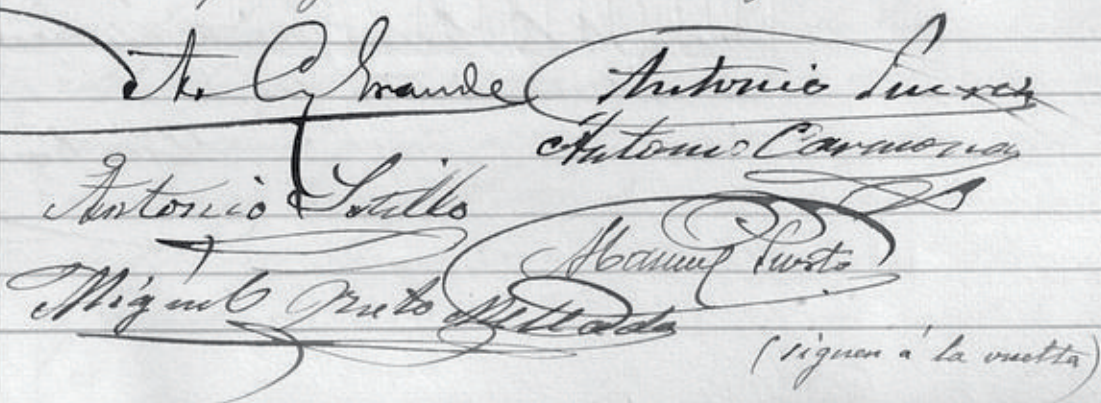 Grande Antonio Suarez
Antonio Carmona
Antonio Sotillo
Manuel Puerto
Miguel Prieto
(siguen á la vuelta)